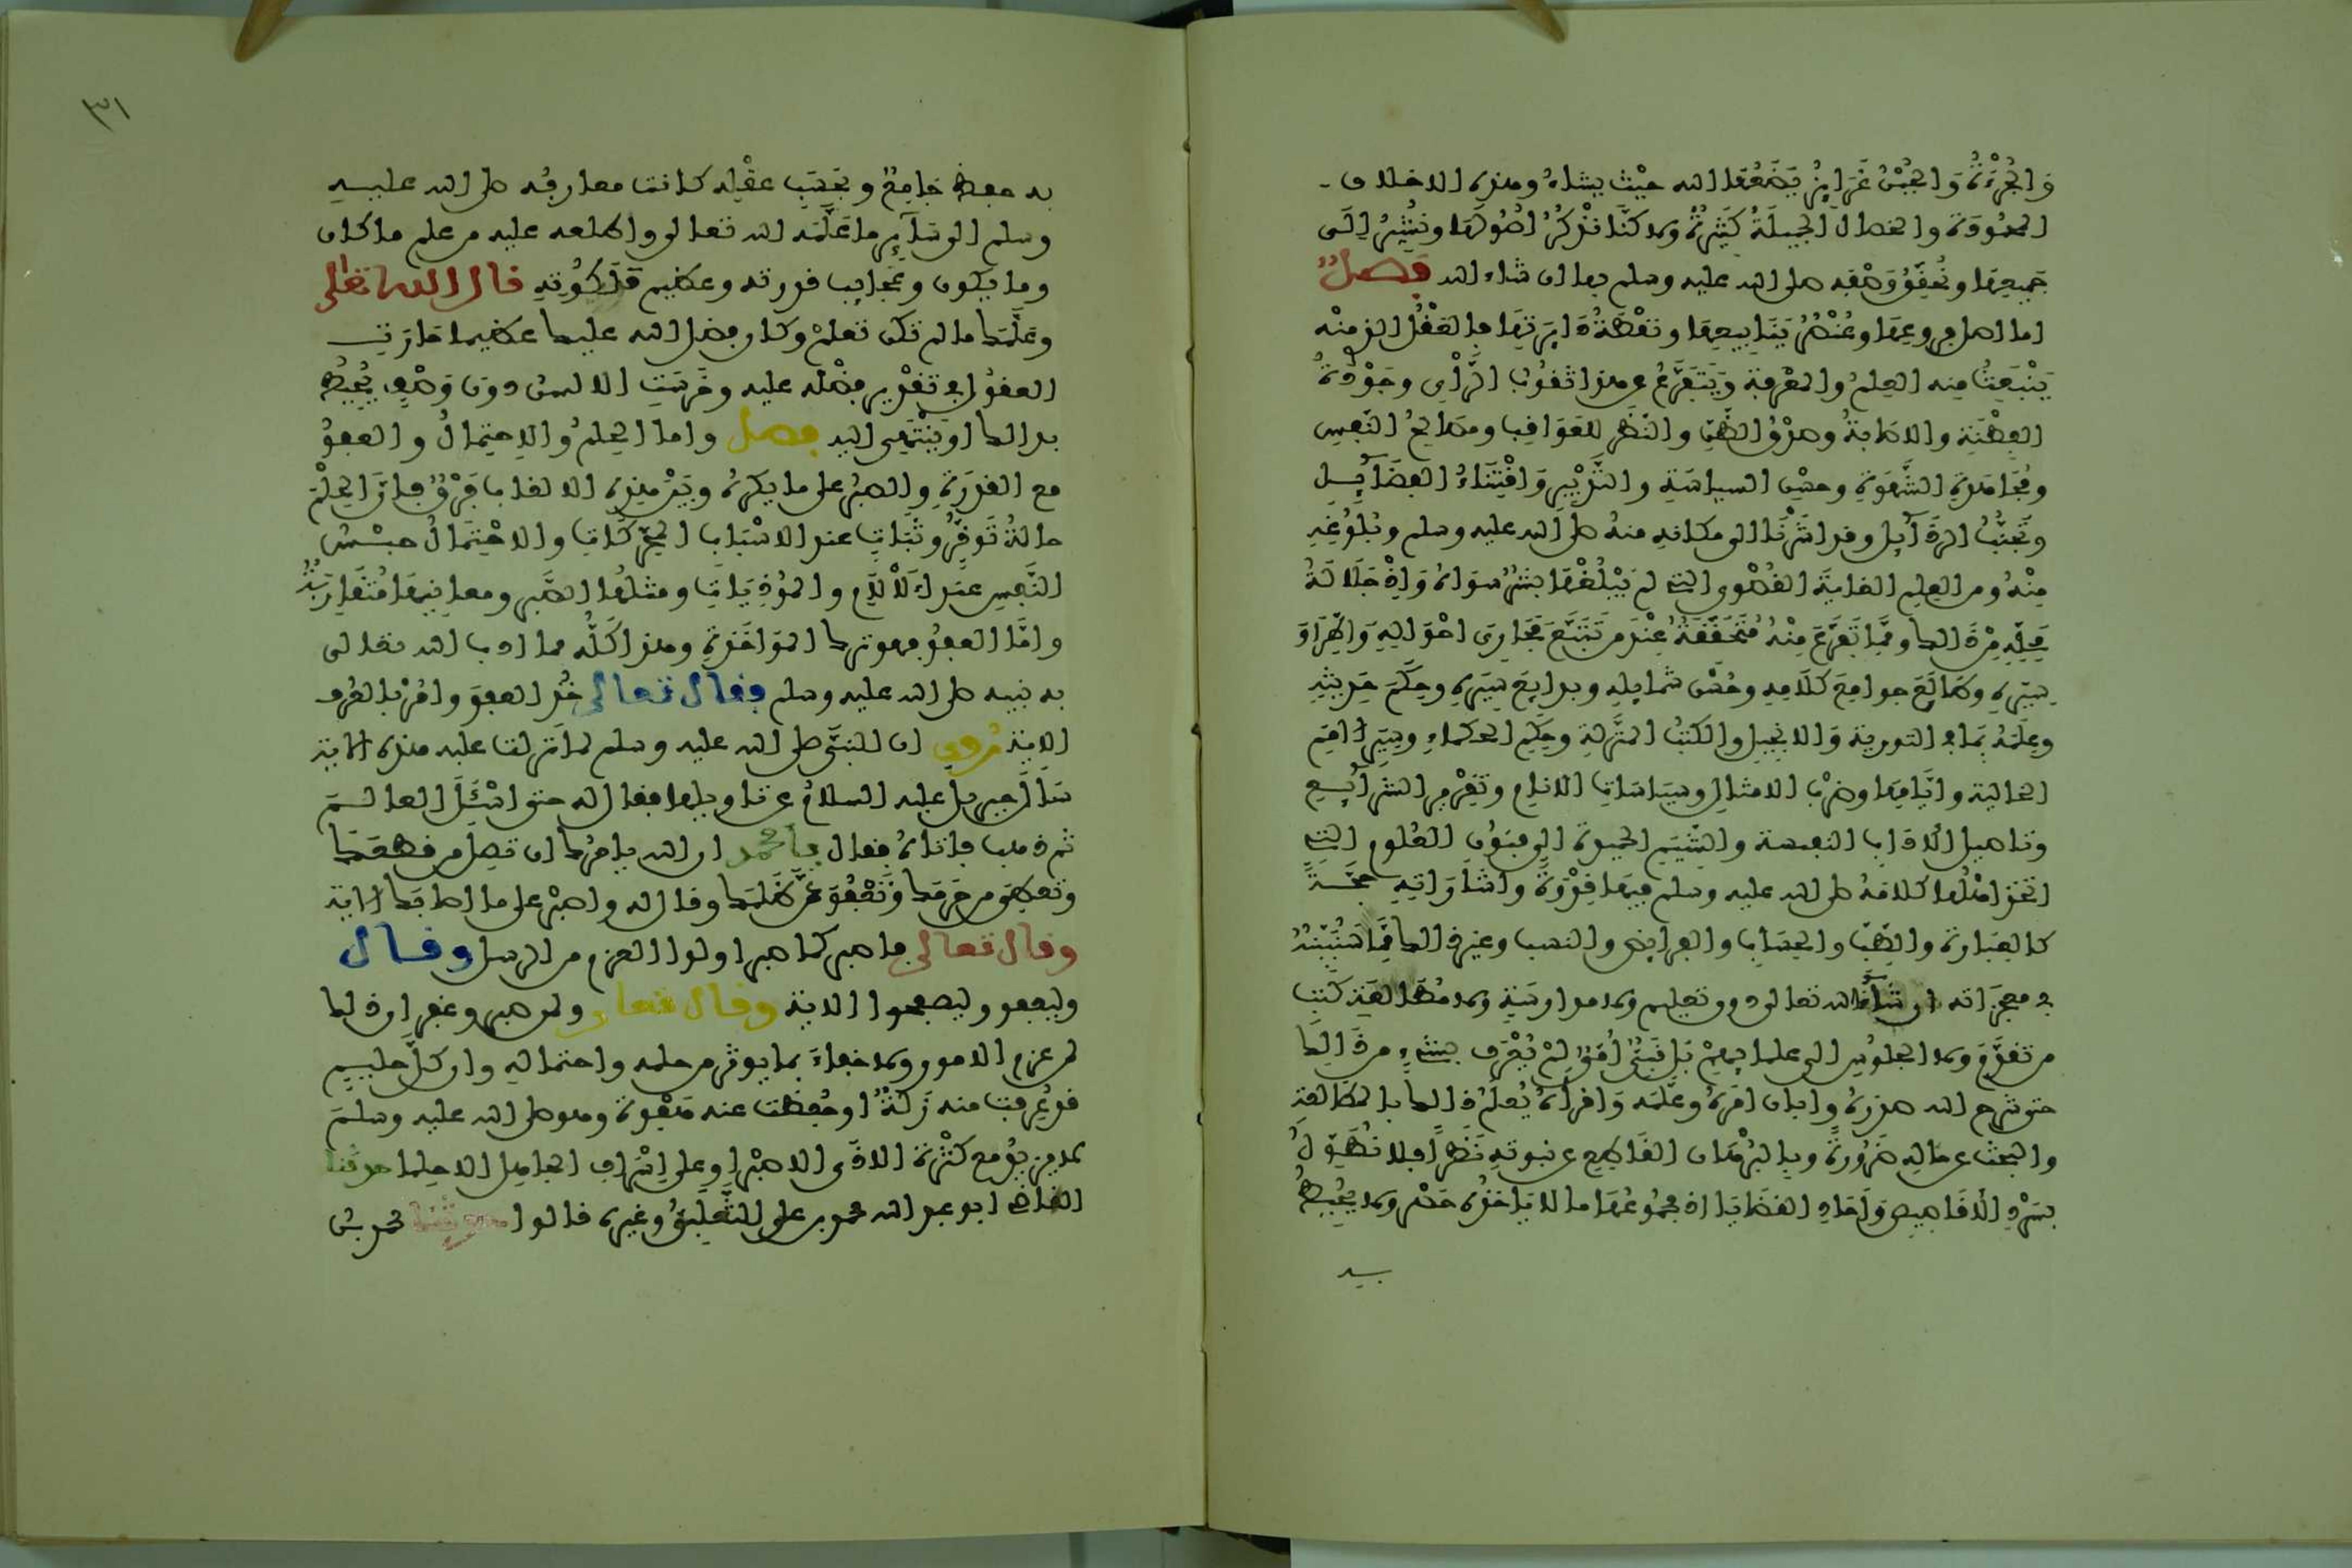 وَالجُرْءَةُ وَالجُبْنُ غَرَائِزُ يَضَعُهَا الله حيْث يشاءُ وهذه الاخلاق
المحمُودَة والخصال الجميلَةُ كَثِيرَةٌ ولاكنَّا نذْكُرُ اصُولَهَا ونُشِيرُ إلَى
جَمِيعِهَا ونُحَقِّقُ وَصْفِه صلى الله عليه وسلم بها ان شاء الله فصلٌ
اما اصل فروعِهَا وعُنْصُرُ يَنَابِيعِهَا ونقْطَةُ دَائِرَتِهَا فالعَقْلُ الذى منْه
يَنْبَعِثُ مِنه العِلمُ والمَعْرِفة وَيَتَفَرَّعُ عن هذا ثقُوبُ الرَّأْىِ وجَوْدَةُ
الفِطْنَةِ والاصَابةُ وصِدْقُ الظَّنِّ والنَّظَرِ للعَوَاقِبِ ومصَالِحُ النَّفسِ
ومُجَاهَدَةِ الشَّهوَةِ وحسْنِ السيَاسَةِ والتَّدْبِيرِ وَاقْتِنَاءُ الفضَآئِلِ
وتَجَنُّبُ الرذَآئِلِ وقد اشَرْنَا الى مكَانهِ منهُ صلى الله عليه وسلم وبُلُوغِهِ
مِنْهُ ومن العِلمِ الغايَةَ القُصْوى التى لم يَبْلُغْهَا بشَرٌ سوَاهُ وَإِذْ جَلَالَةُ
مَحلِّهِ مِنْ ذَالك ومِمَّا تَفَرَّعَ مِنْهُ مُتحَقّقَةٌ عِنْدَ من تَتَبَّعَ مَجَارِىَ احْوَالِهِ وَاطِّرَادَ
سِيَرِهِ وطَالَعَ جوامِعَ كَلَامِهِ وحُسْنَ شمايلِهِ وبدايِعَ سِيَرِهِ وحِكَمَ حَدِيثِهِ
وعِلْمَهُ بمَا فى التورية وَالانجيلِ والكتبِ المنزَّلةِ وحِكَمِ الحكماءِ وسِيَرِ الاممِ
الخالية وايَّامِهَا وضرْبِ الامثالِ وسيَاسَاتِ الانامِ وتقْرِيرِ الشرآئِعِ
وتاصيل الادَابِ النفيسة والشِّيَمِ الحميدةِ الى فنُونِ العُلومِ التى
اتخذ اهْلُها كلامَهُ صلى الله عليه وسلم فيهَا قدْوَةً واشَارَاتِهِ حجَّةً
كالعبَارةِ والطِّبِّ والحِسَابِ والفرايضِ والنسب وغير ذالك مِمَّا سَنُبَيِّنُهُ
فى معجزَاته ان شآءَ الله تعالى دون تعليم ولا مدارسَةِ ولا مُطَالعَةِ كُتبِ
من تقدَّمَ ولا الجلوسِ الى علمايِهِمْ بَل نَبِىٌّ أُمِّىٌّ لمْ يُعْرَف بشىْءٍ من ذَالِكَ
حتى شرح الله صدرهُ وابانَ امْرَهُ وعلَّمَه وَاقرأهُ يُعلَمُ ذالك بالمطَالعَةِ
والبحثِ عن حَالِه ضَرُورةً وبالبُرْهَانِ القَاطِعِ عن نبوته نَظَراً فلا نُطَوِّلُ
بسَرْدِ الاقَاصِيصِ وَآحَادِ القضَايَا اذ مجمُوعُهَا ما لا يَاخذُهُ حَصْر ولا يحُيطُ
بـه
٣١
به حفظ جَامِعٌ وبحَسَبِ عقْلِه كانت معارفُه صلى الله عليه
وسلم الى سَآئِر ما عَلَّمَه الله تعالى واطلعه عليه من علم ما كان
وما يكون وعَجايِب قدرته وعظيم مَلَكُوتِهِ قال الله تعالى
وعَلَّمَك ما لم تكن تعلمْ وكان فضل الله عليك عظيما حَارَتِ
العقوُل فى تقدْير فضْلِه عليه وخَرِسَتِ الالسُن دونَ وَصْفٍ يُحيطُ
بذالك اوْ يَنْتَهِى اليه فصل واما الحِلمُ والِاحتِمَالُ والعفوُ
مع القدْرَةِ والصبْرُ على ما يكرهُ وبَيْن هذِه الالقابِ فَرْقٌ فانَّ الحِلْمَ
حالةُ تَوقُّرٍ وثَبَاتٍ عند الاسْبَابِ المحرِّكَاتِ والاحْتِمَالُ حبْسُ
النَّفسِ عِنْدَ الْآلَامِ والمُؤذِيَاتِ ومثلُهَا الصَّبر ومعانِيهَا مُتقَارِبَةٌ
وامَّا العفوُ فهو تركُ المُؤاخَذةِ وهذا كُلُّه مما ادب الله تعالى
به نبيه صلى الله عليه وسلم فقال تعالى خُذِ العفوَ وامُرْ بالعُرف
الاية رُوِىَ ان النبيَّ صلى الله عليه وسلم لما نزلت عليه هذه الاية
سَأَلَ جبريل عليه السلامُ عن تاويلها فقال له حتى اسْئَلَ العالمَ
ثم ذهب فاتاهُ فقال يا محمد ان الله يامُرُك ان تصِلَ من قطعَكَ
وتعطىَ من حَرمَك وَتَعْفُوَ عمَّن ظَلَمَك وقال له واصْبرْ على ما اصَابَك الاية
وقال تعالى فاصبر كما صبر اولوا العزم من الرسل وقال
وليعفوا وليصفحوا الاية وقال تعالى ولمن صبر وغفر إن ذلك
لمن عزمِ الامور ولا خفاءَ بما يوثَر من حلمه واحتمالِه وان كلَّ حليمٍ
قد عُرِفت منه زَلَّةٌ اوحُفِظَت عنه هَفْوةٌ وهو صلى الله عليه وسلمَ
لا يزِيدُ مع كثْرةِ الاذَى الا صَبْرا وعلى إسْرافِ الجاهِلِ الا حِلما حدثنا
القاضى ابو عبد الله محمد بن على التَّغلِبِىُّ وغيره قالوا حدثنا محمد بنُ